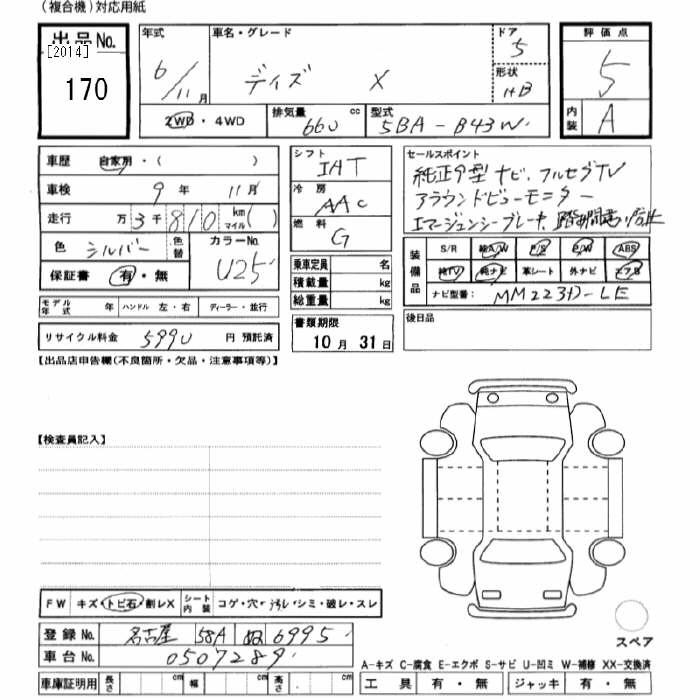 (複合機)対応用紙
出品No. [2014] 170
年式 6/11月
車名・グレード デイズ X
ドア 5
形状 HB
評価点 5
内装 A
2WD・4WD
排気量 660 cc
型式 5BA-B43W
車歴 自家用・( )
車検 9年 11月
走行 万 3千810 km マイル ( )
色 シルバー 色替
カラーNo. U25
保証書 有・無
シフト IAT
冷房 AAC
燃料 G
乗車定員 名
積載量 kg
総重量 kg
セールスポイント
純正9型ナビ、フルセグTV
アラウンドビューモニター
エマージェンシーブレーキ、踏み間違い防止
装備品 S/R 純A/W P/S P/W ABS
純TV 純ナビ 革シート 外ナビ エアB
ナビ型番: MM223D-LE
モデル年式 年 ハンドル 左・右 ディーラー・並行
リサイクル料金 5990 円 預託済
書類期限 10月 31日
後日品
【出品店申告欄(不良箇所・欠品・注意事項等)】
【検査員記入】
FW キズ・トビ石・割レX シート内装 コゲ・穴・汚レ・シミ・破レ・スレ
登録No. 名古屋 584 ぬ 6995
車台No. 0507289
車庫証明用 長さ cm 幅 cm 高さ cm
スペア
A-キズ C-腐食 E-エクボ S-サビ U-凹ミ W-補修 XX-交換済
工具 有・無 ジャッキ 有・無